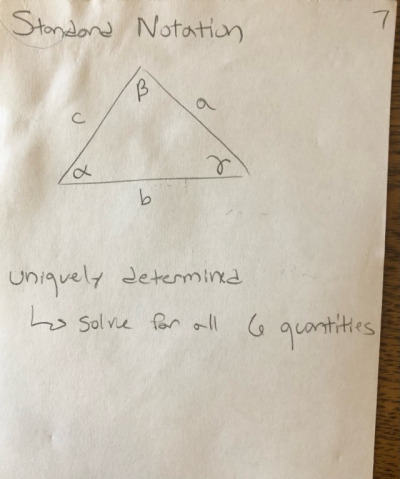 Standard Notation 7
β
c a
α γ
b
uniquely determined
↳ Solve for all 6 quantities